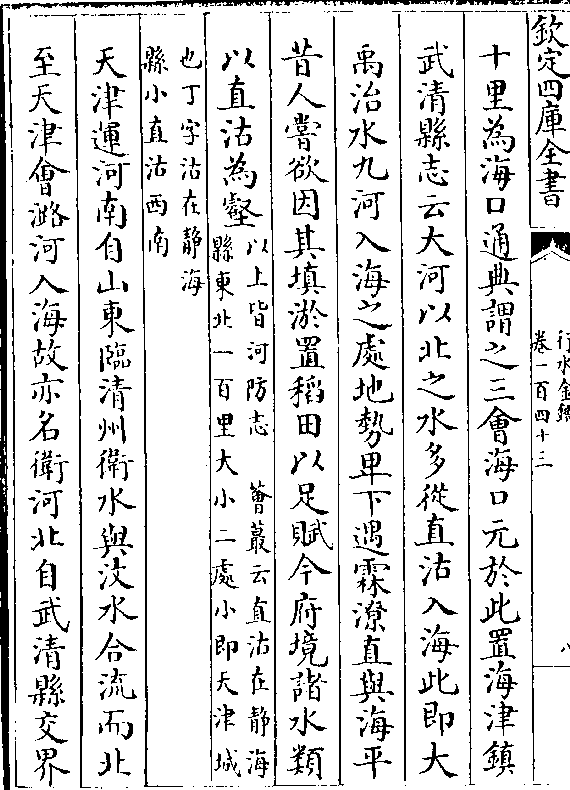 欽定四庫全書
行水金鑑
卷一百四十三
八
十里為海口通典謂之三會海口元於此置海津鎮
武清縣志云大河以北之水多從直沽入海此即大
禹治水九河入海之處地勢卑下遇霖潦直與海平
昔人嘗欲因其填淤置稻田以足賦今府境諸水類
以直沽為壑以上皆河防志　薈蕞云直沽在静海
縣東北一百里大小二處小即天津城
也丁字沽在静海
縣小直沽西南
天津運河南自山東臨清州衛水與汶水合流而北
至天津會潞河入海故亦名衛河北自武清縣交界